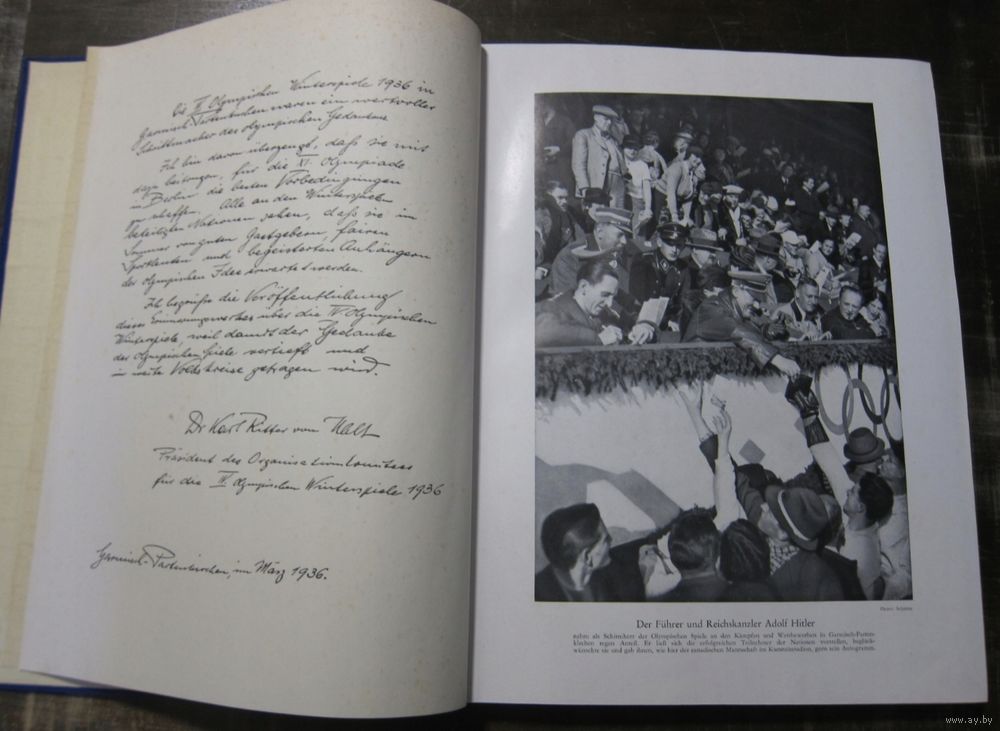 Die IV. Olympischen Winterspiele 1936 in
Garmisch-Partenkirchen waren ein wertvoller
Schrittmacher des olympischen Gedankens
Ich bin davon überzeugt, daß sie mit
dazu beitragen, für die XI. Olympiade
in Berlin die besten Vorbedingungen
zu schaffen. Alle an den Winterspielen
beteiligten Nationen sahen, daß sie im
Sommer von guten Gastgebern, fairen
Sportleuten und begeisterten Anhängern
der olympischen Idee erwartet werden.
Ich begrüße die Veröffentlichung
dieses Erinnerungswerkes über die IV. Olympischen
Winterspiele, weil damit der Gedanke
der olympischen Spiele vertieft und
in weite Volkskreise getragen wird.
Dr Karl Ritter von Halt
Präsident des Organisationskomitees
für die IV. Olympischen Winterspiele 1936
Garmisch-Partenkirchen, im März 1936.
Der Führer und Reichskanzler Adolf Hitler
nahm als Schirmherr der Olympischen Spiele an den Kämpfen und Wettbewerben in Garmisch-Parten-
kirchen regen Anteil. Er ließ sich die erfolgreichen Teilnehmer der Nationen vorstellen, beglück-
wünschte sie und gab ihnen, wie hier der kanadischen Mannschaft im Kunsteisstadion, gern sein Autogramm.
www.ay.by